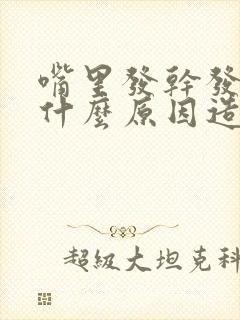 嘴里發幹發
什麼原因造
超級大坦克科